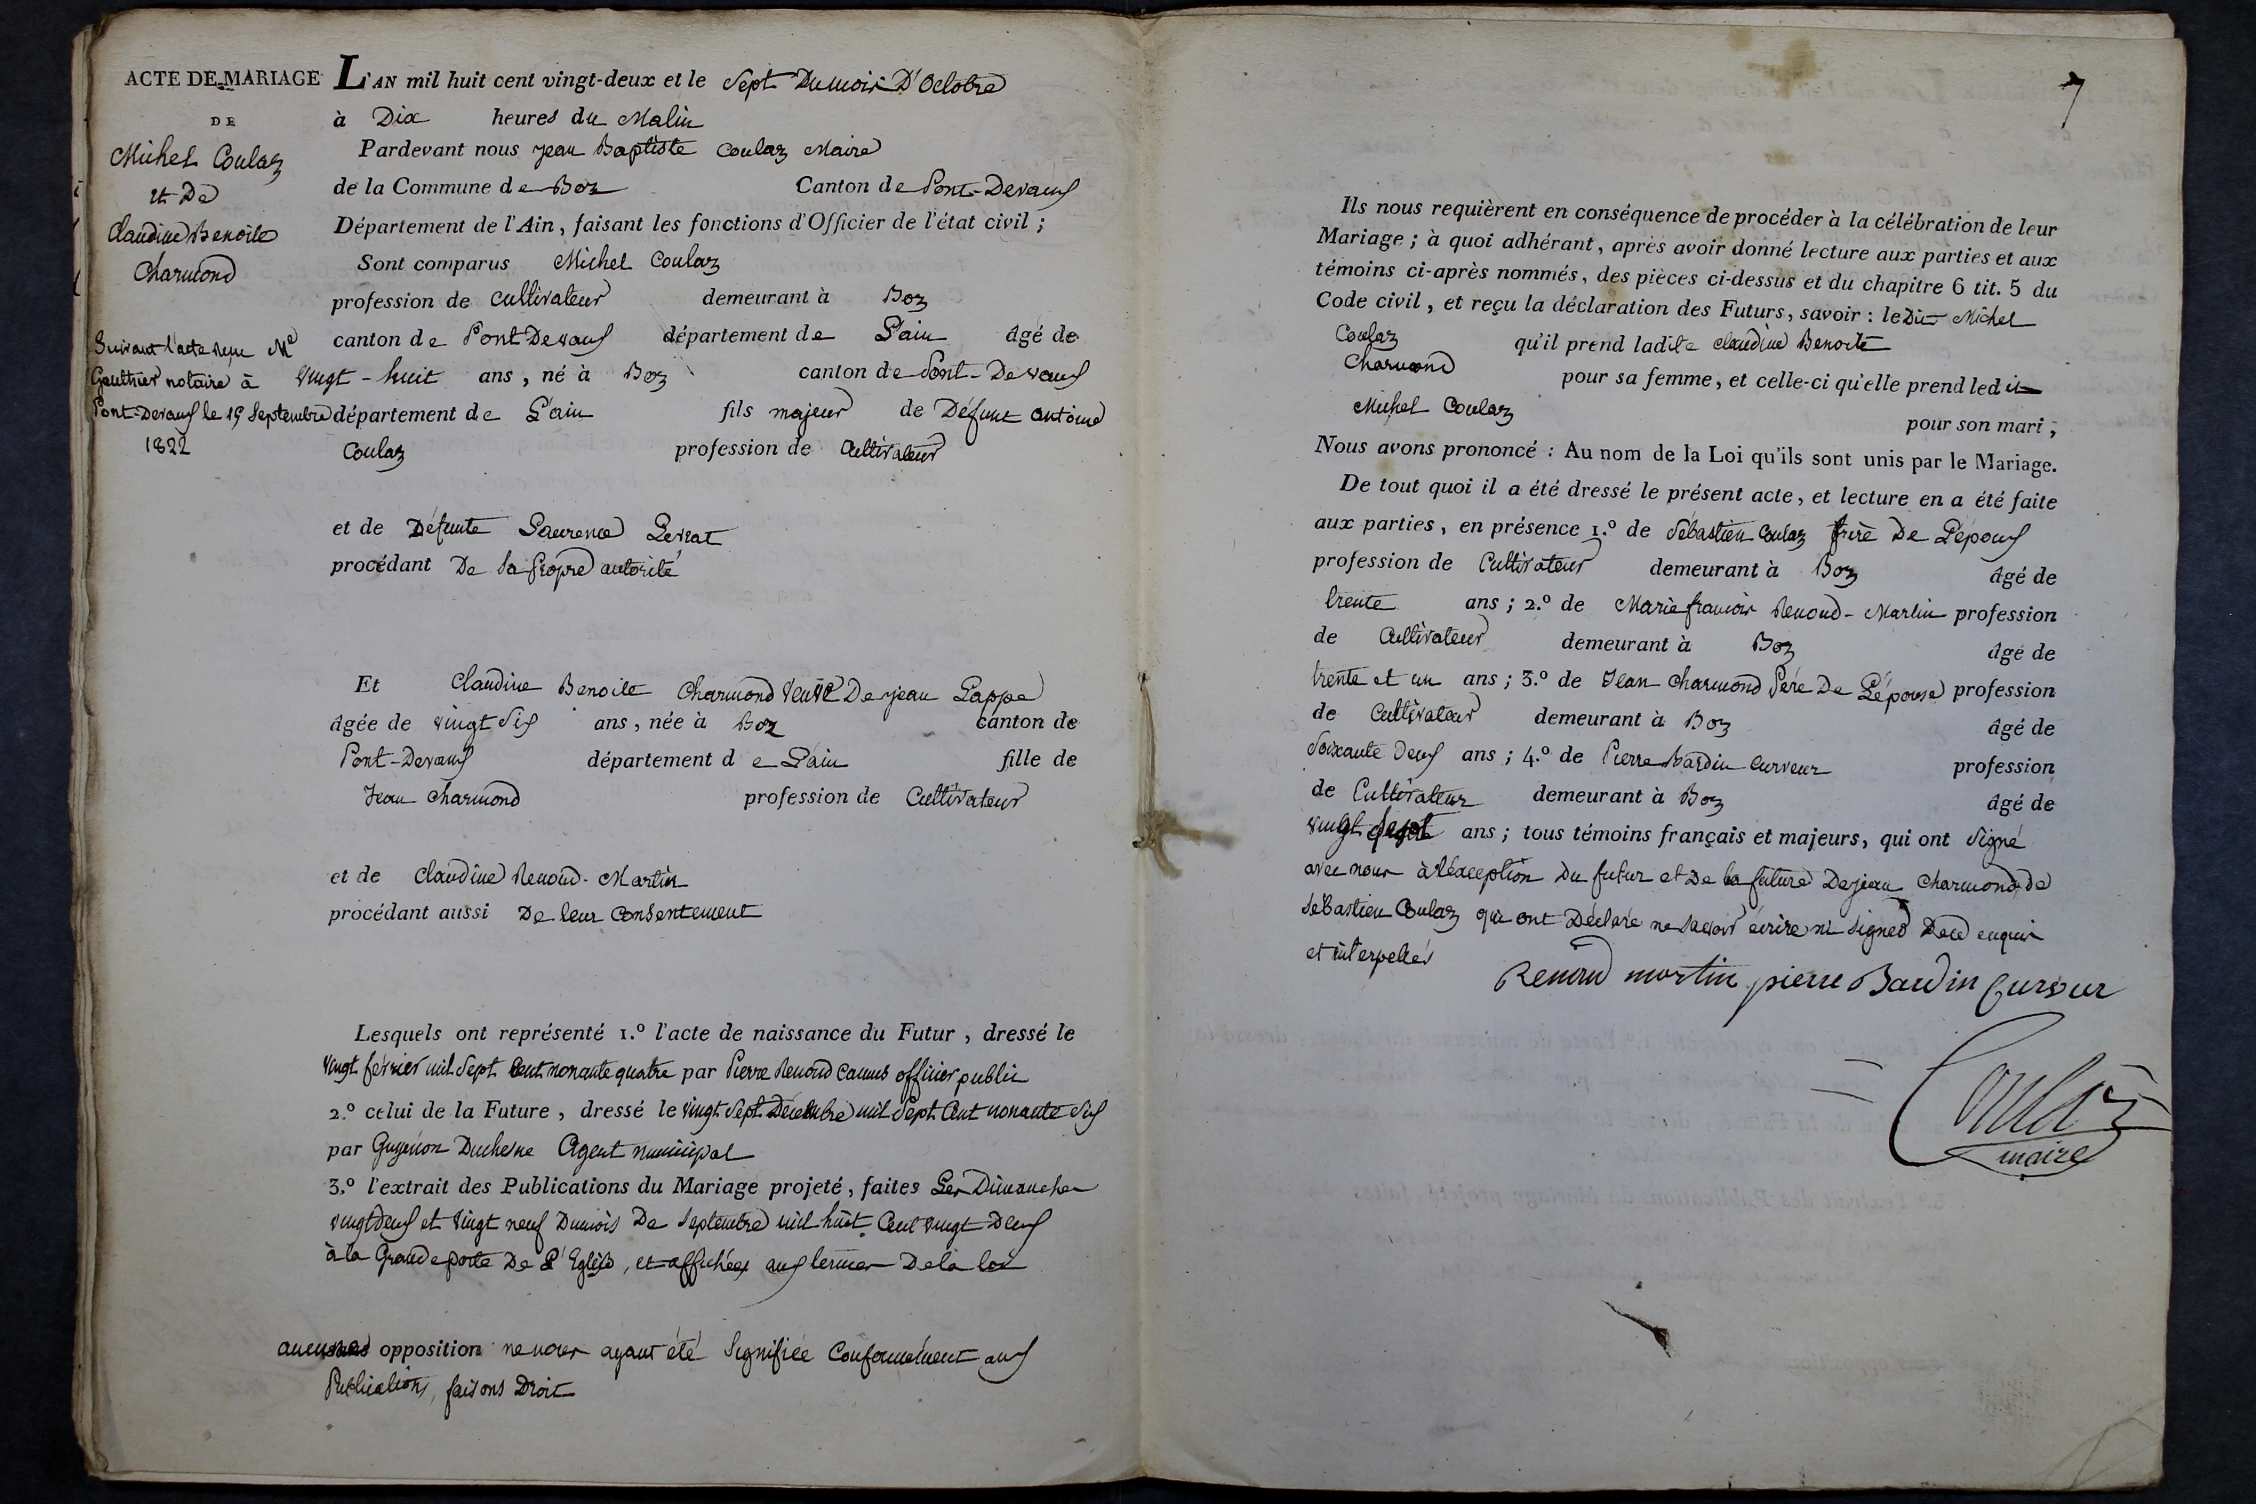 ACTE DE MARIAGE
DE
Michel Coulaz
et De
Claudine Benoite
Charmond
Suivant l'acte reçu Me
Gauthier notaire à
Pont-Devaux le 19 Septembre
1822
L'AN mil huit cent vingt-deux et le Sept Du mois D'Octobre
à Dix heures du Matin
Pardevant nous jean Baptiste Coulaz Maire
de la Commune de Boz Canton de Pont-Devaux
Département de l'Ain, faisant les fonctions d'Officier de l'état civil ;
Sont comparus Michel Coulaz
profession de Cultivateur demeurant à Boz
canton de Pont Devaux département de L'ain âgé de
vingt-huit ans, né à Boz canton de Pont-Devaux
département de L'ain fils majeur de Défunt antoine
Coulaz profession de Cultivateur
et de Défunte Laurence Levrat
procédant De Sa propre autorité
Et Claudine Benoite Charmond veuve De jean Lappe
âgée de vingt Six ans, née à Boz canton de
Pont-Devaux département de L'ain fille de
Jean Charmond profession de Cultivateur
et de Claudine Renoud-Martin
procédant aussi De leur Consentement
Lesquels ont représenté 1.º l'acte de naissance du Futur, dressé le
vingt février mil Sept Cent nonante quatre par Pierre Renoud Camus officier public
2.º celui de la Future, dressé le vingt Sept Décembre mil Sept Cent nonante Six
par Guyenon Duchesne Agent municipal
3.º l'extrait des Publications du Mariage projeté, faites Les Dimanches
vingt deux et vingt neuf Du mois De Septembre mil huit Cent vingt Deux
à la Grande porte De L'Eglise, et affichées aux termes De la loi
aucune opposition ne nous ayant été Signifiée Conformément aux
Publications, faisons Droit
7
Ils nous requièrent en conséquence de procéder à la célébration de leur
Mariage ; à quoi adhérant, après avoir donné lecture aux parties et aux
témoins ci-après nommés, des pièces ci-dessus et du chapitre 6 tit. 5 du
Code civil, et reçu la déclaration des Futurs, savoir : le Dit Michel
Coulaz qu'il prend ladite Claudine Benoite
Charmond pour sa femme, et celle-ci qu'elle prend ledit
Michel Coulaz pour son mari ;
Nous avons prononcé : Au nom de la Loi qu'ils sont unis par le Mariage.
De tout quoi il a été dressé le présent acte, et lecture en a été faite
aux parties, en présence 1.º de Sébastien Coulaz frère De L'époux
profession de Cultivateur demeurant à Boz âgé de
trente ans ; 2.º de Marie françois Renoud-Martin profession
de Cultivateur demeurant à Boz âgé de
trente et un ans ; 3.º de Jean Charmond Père De L'épouse profession
de Cultivateur demeurant à Boz âgé de
Soixante Deux ans ; 4.º de Pierre Bardin Curveur profession
de Cultivateur demeurant à Boz âgé de
vingt Sept ans ; tous témoins français et majeurs, qui ont Signé
avec nous à l'éxception Du futur et De la future De jean Charmond, de
Sébastien Coulaz qui ont Déclaré ne Savoir écrire ni Signer De ce enquis
et interpellés
Renoud martin pierre Bardin Curveur
Coulaz
maire